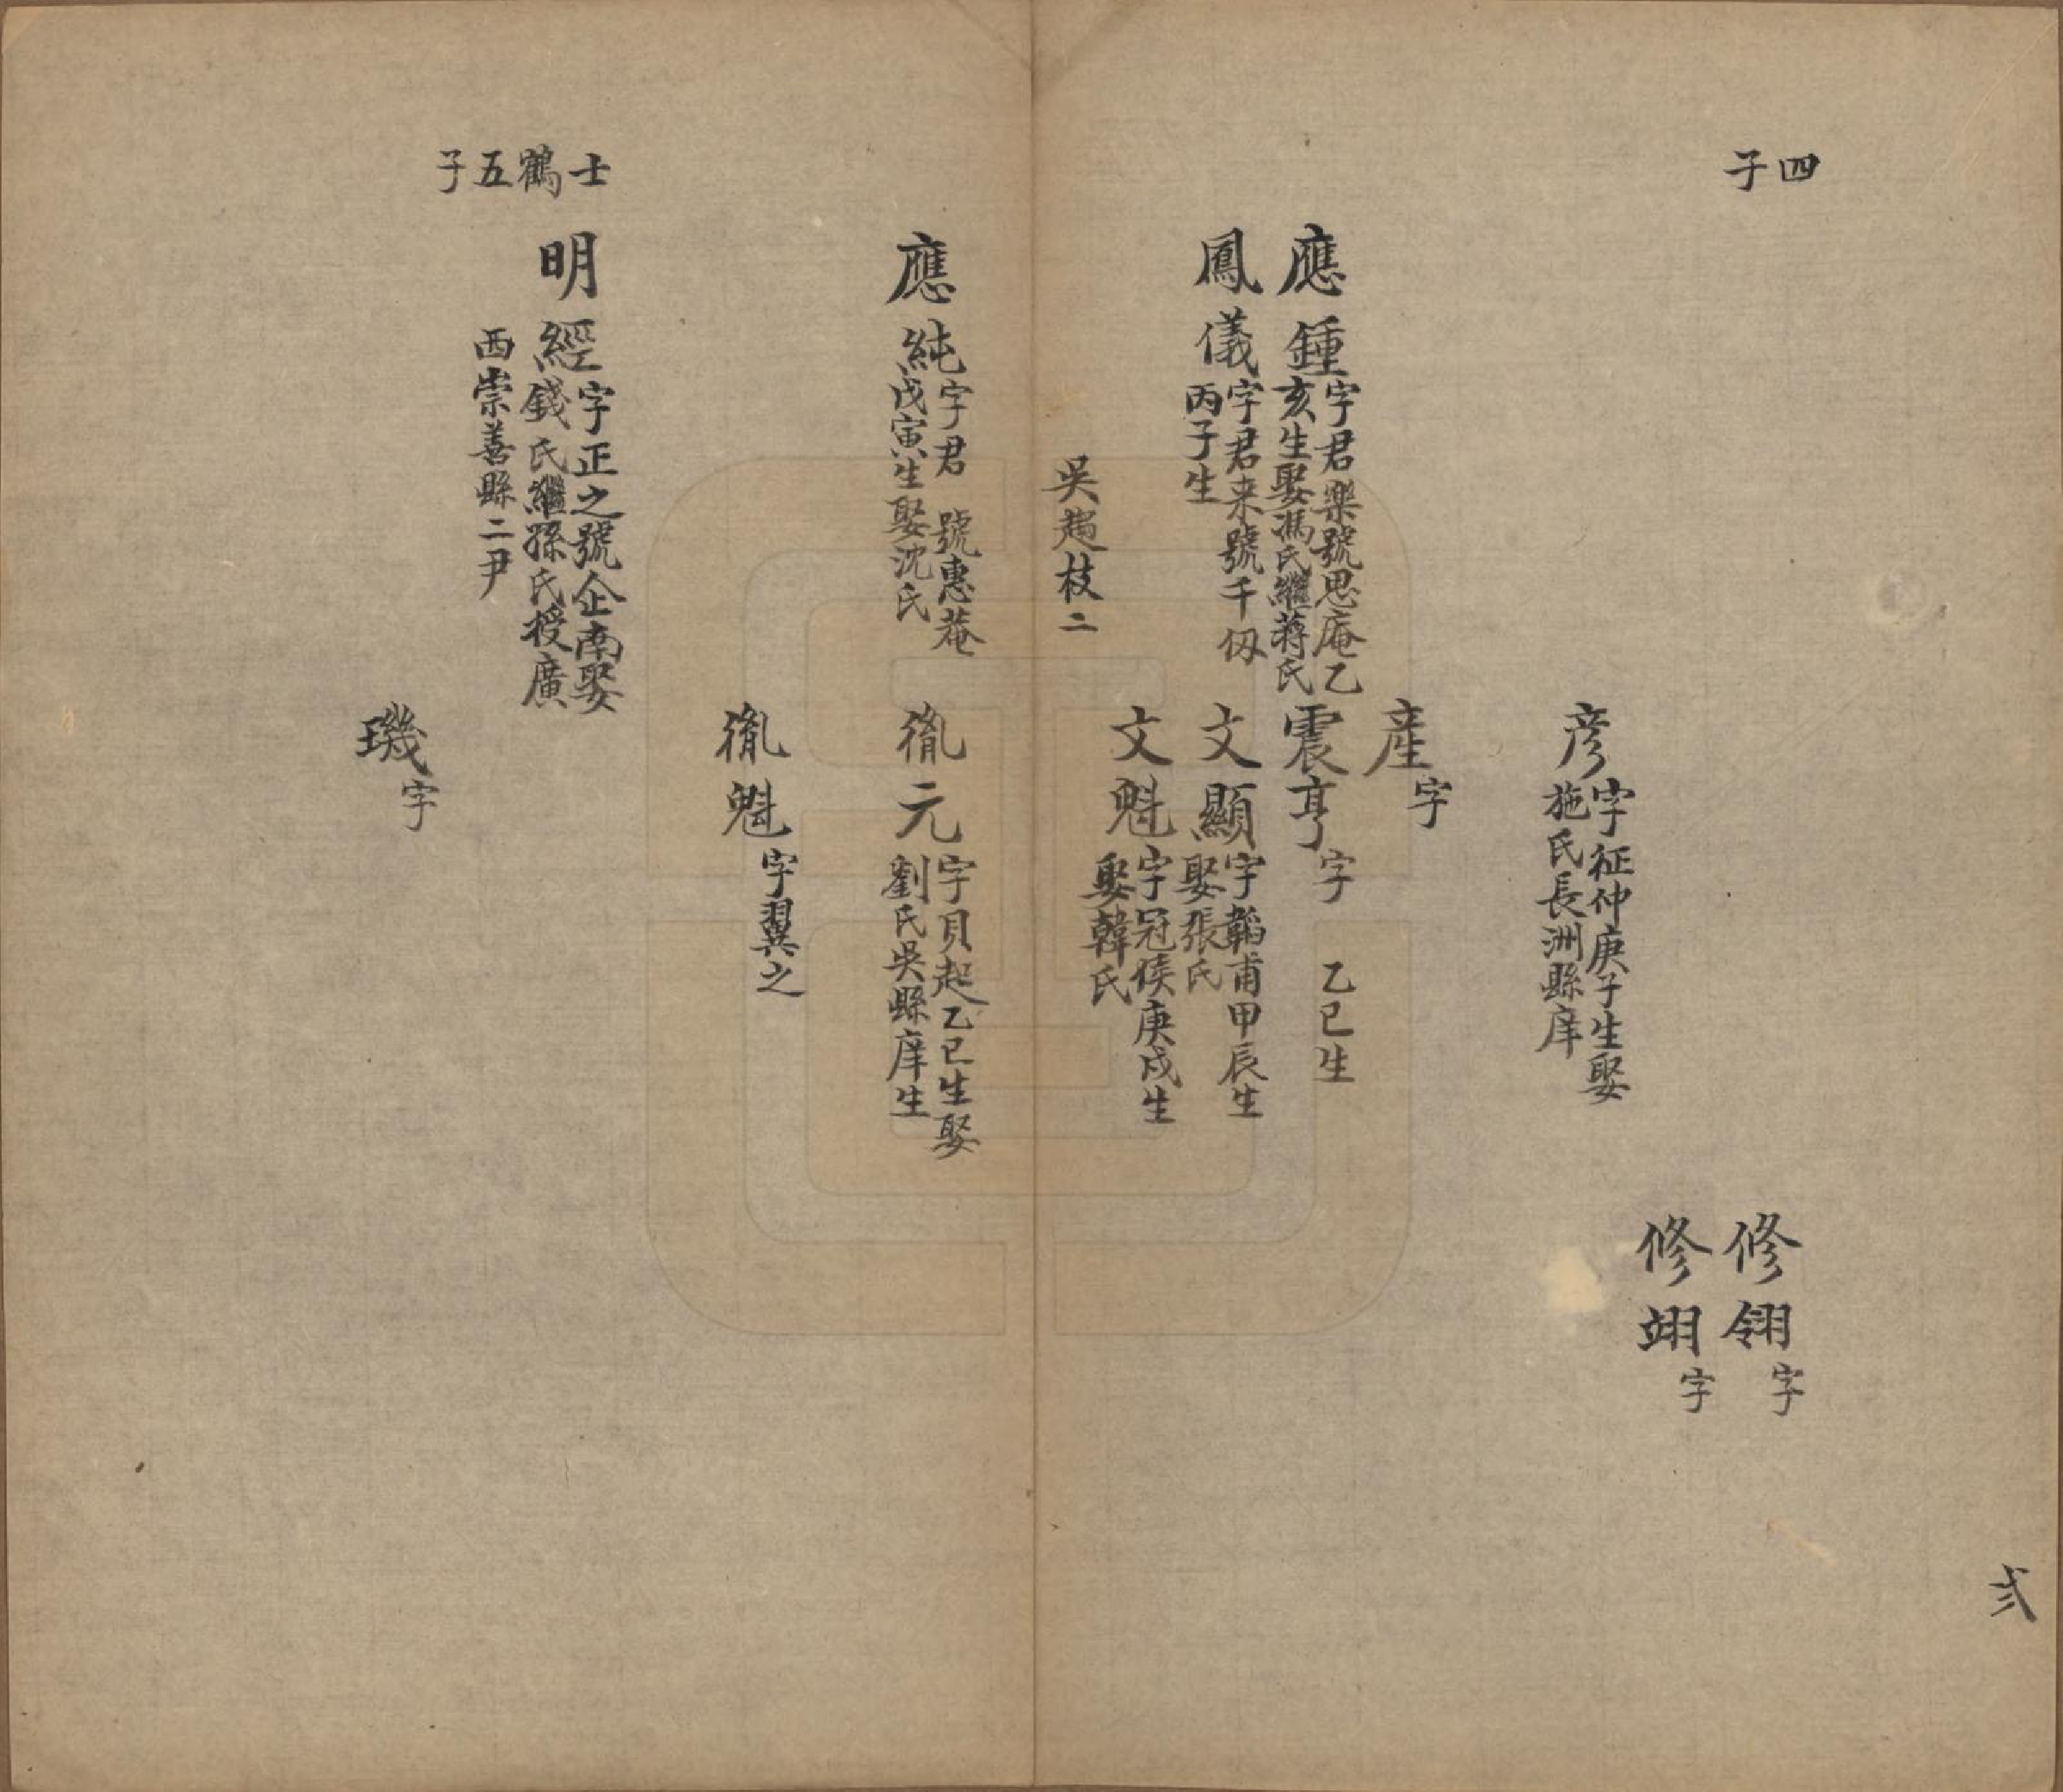 四子
修翎字
修翊字
彦字征仲庚子生娶
施氏長洲縣庠
產字
應鍾字君樂號思庵乙
亥生娶馮氏繼蔣氏
震亨字 乙巳生
鳳儀字君来號千仭
丙子生
文顯字韜甫甲辰生
娶張氏
文魁字冠侯庚戌生
娶韓氏
吳趨枝二
應純字君 號惠菴
戊寅生娶沈氏
胤元字貝起乙巳生娶
劉氏吳縣庠生
胤魁字翼之
士鶴五子
明經字正之號企南娶
錢氏繼孫氏授廣
西崇善縣二尹
璣字
弍